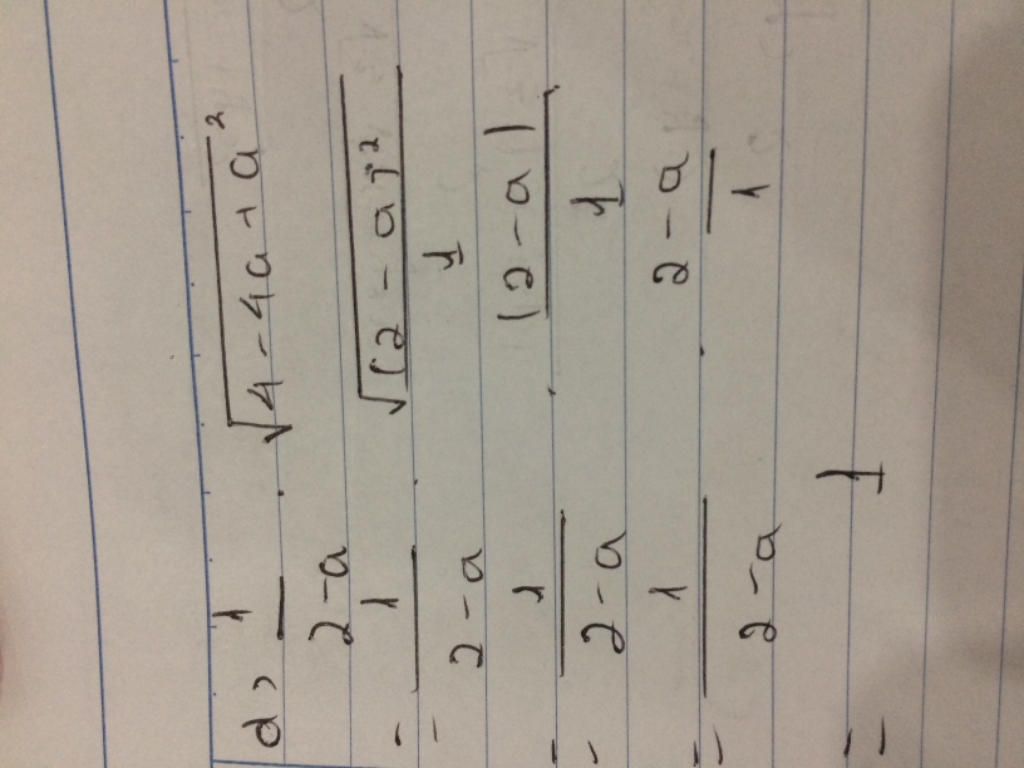 d, 1/(2-a) . √(4-4a+a²)
= 1/(2-a) . √((2-a)²)/1
= 1/(2-a) . |2-a|/1
= 1/(2-a) . (2-a)/1
= 1